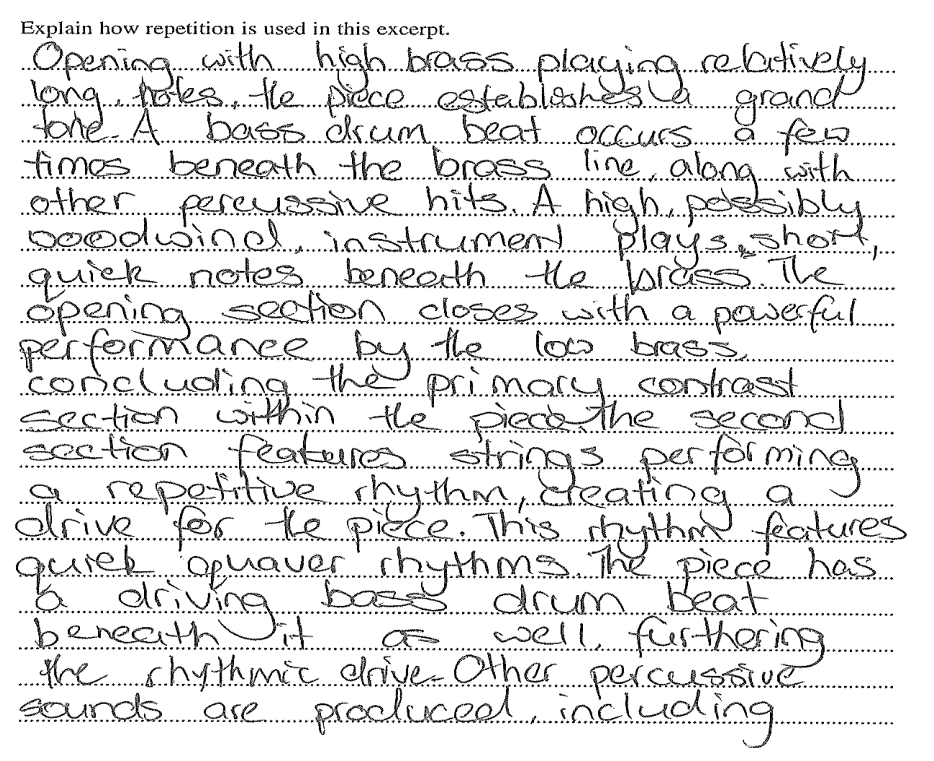 Explain how repetition is used in this excerpt.
Opening with high brass playing relatively
long notes, the piece establishes a grand
tone. A bass drum beat occurs a few
times beneath the brass line, along with
other percussive hits. A high, possibly
woodwind, instrument plays short,
quick notes beneath the brass. The
opening section closes with a powerful
performance by the low brass,
concluding the primary contrast
section within the piece. The second
section features strings performing
a repetitive rhythm, creating a
drive for the piece. This rhythm features
quick quaver rhythms. The piece has
a driving bass drum beat
beneath it as well, furthering
the rhythmic drive. Other percussive
sounds are produced, including